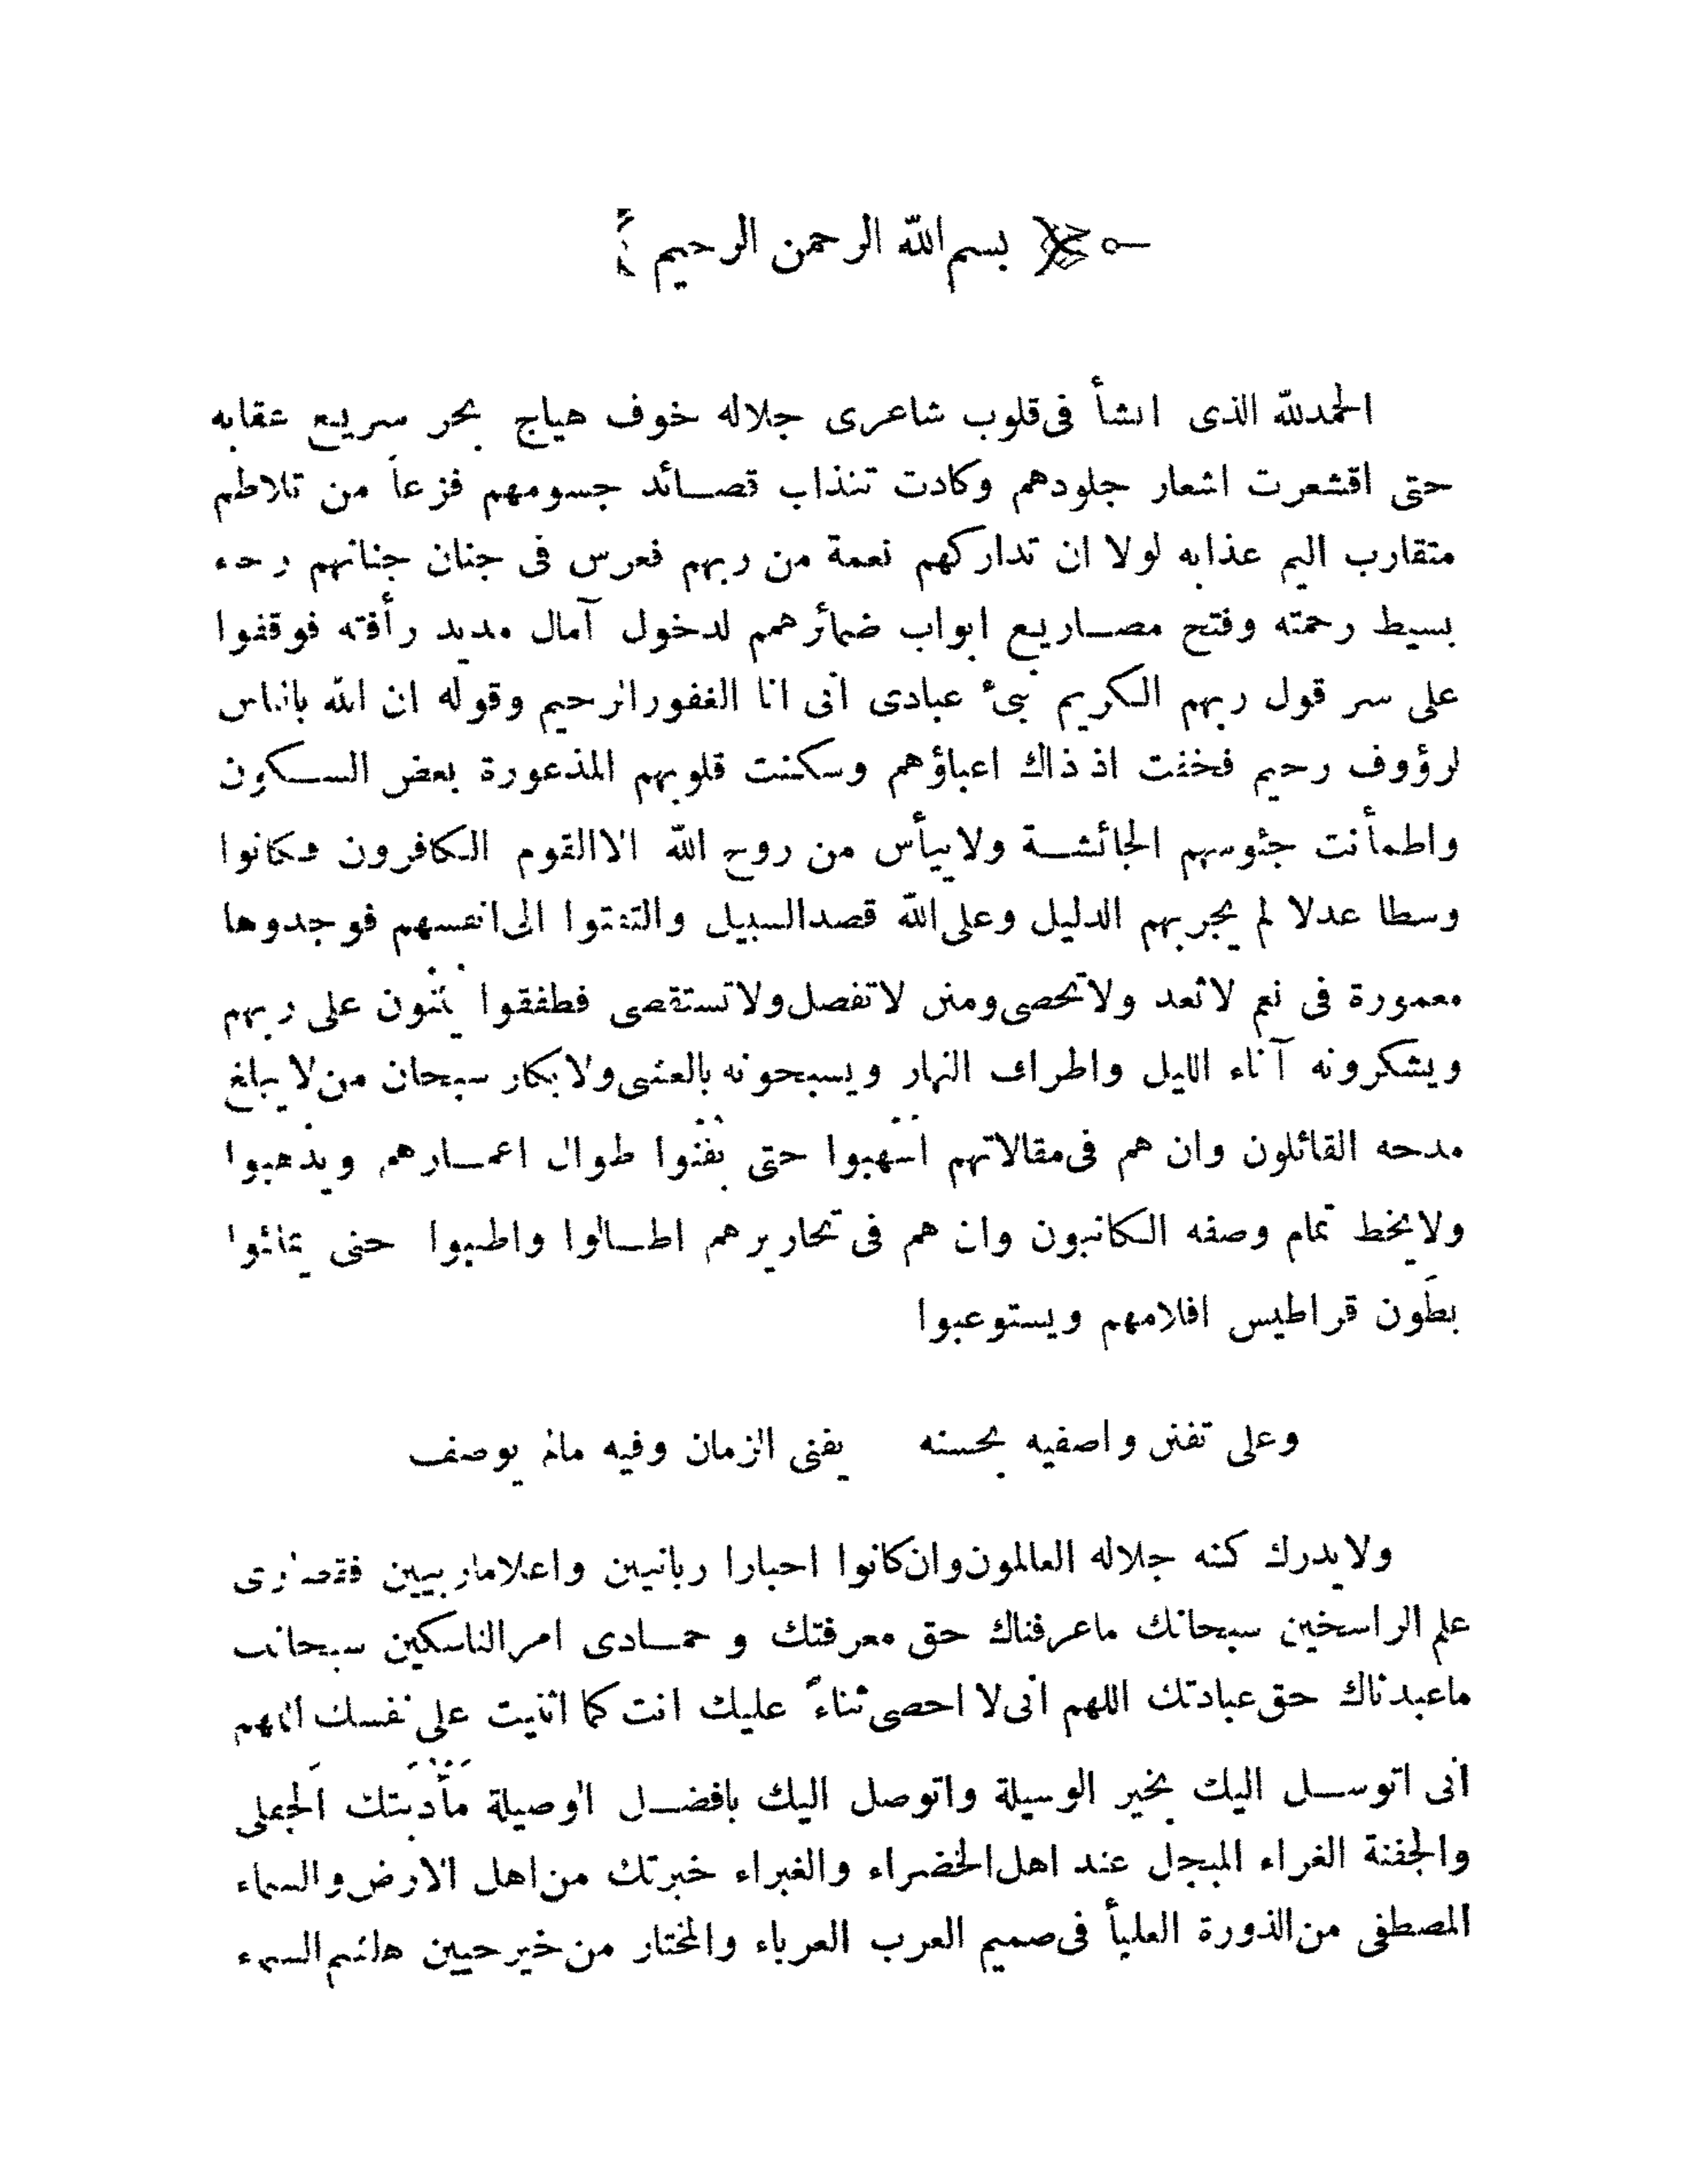 بسم الله الرحمن الرحيم
الحمدلله الذى انشأ فى قلوب شاعرى جلاله خوف هياج بحر سريع عقابه
حتى اقشعرت اشعار جلودهم وكادت تنذاب قصائد جسومهم فزعا من تلاطم
متقارب اليم عذابه لولا ان تداركهم نعمة من ربهم فعرس فى جنان جنانهم
بسيط رحمته وفتح مصاريع ابواب ضمائرهمم لدخول آمال مديد رأفته فوقفوا
على سر قول ربهم الكريم نبئ عبادى انى انا الغفور الرحيم وقوله ان الله بالناس
لرؤوف رحيم فخفت اذ ذاك اعباؤهم وسكنت قلوبهم المذعورة بعض السكون
واطمأنت جئوسهم الجائشة ولاييأس من روح الله الاالقوم الكافرون فكانوا
وسطا عدلا لم يجربهم الدليل وعلى الله قصدالسبيل والتفتوا الى انفسهم فوجدوها
معمورة فى نعم لاتعد ولاتحصى ومنن لاتفصل ولاتستقصى فطفقوا يثنون على ربهم
ويشكرونه آناء الليل واطراف النهار ويسبحونه بالعشى ولابكار سبحان من لايبلغ
مدحه القائلون وان هم فى مقالاتهم اسهبوا حتى يفنوا طوال اعمارهم ويذهبوا
ولايخط تمام وصفه الكاتبون وان هم فى تحاريرهم اطالوا واطنبوا حتى يملئوا
بطون قراطيس اقلامهم ويستوعبوا
وعلى تفنن واصفيه بحسنه يفنى الزمان وفيه مالم يوصف
ولايدرك كنه جلاله العالمون وان كانوا احبارا ربانيين واعلاما ربيين فقصارى
علم الراسخين سبحانك ماعرفناك حق معرفتك و حمادى امر الناسكين سبحانك
ماعبدناك حق عبادتك اللهم انى لا احصى ثناءً عليك انت كما اثنيت على نفسك اللهم
انى اتوسل اليك بخير الوسيلة واتوصل اليك بافضل الوصيلة مَأْدبتك الجفلى
والجفنة الغراء المبجل عند اهل الخضراء والغبراء خيرتك من اهل الارض والسماء
المصطفى من الذورة العليأ فى صميم العرب العرباء والمختار من خير حيين هاشم